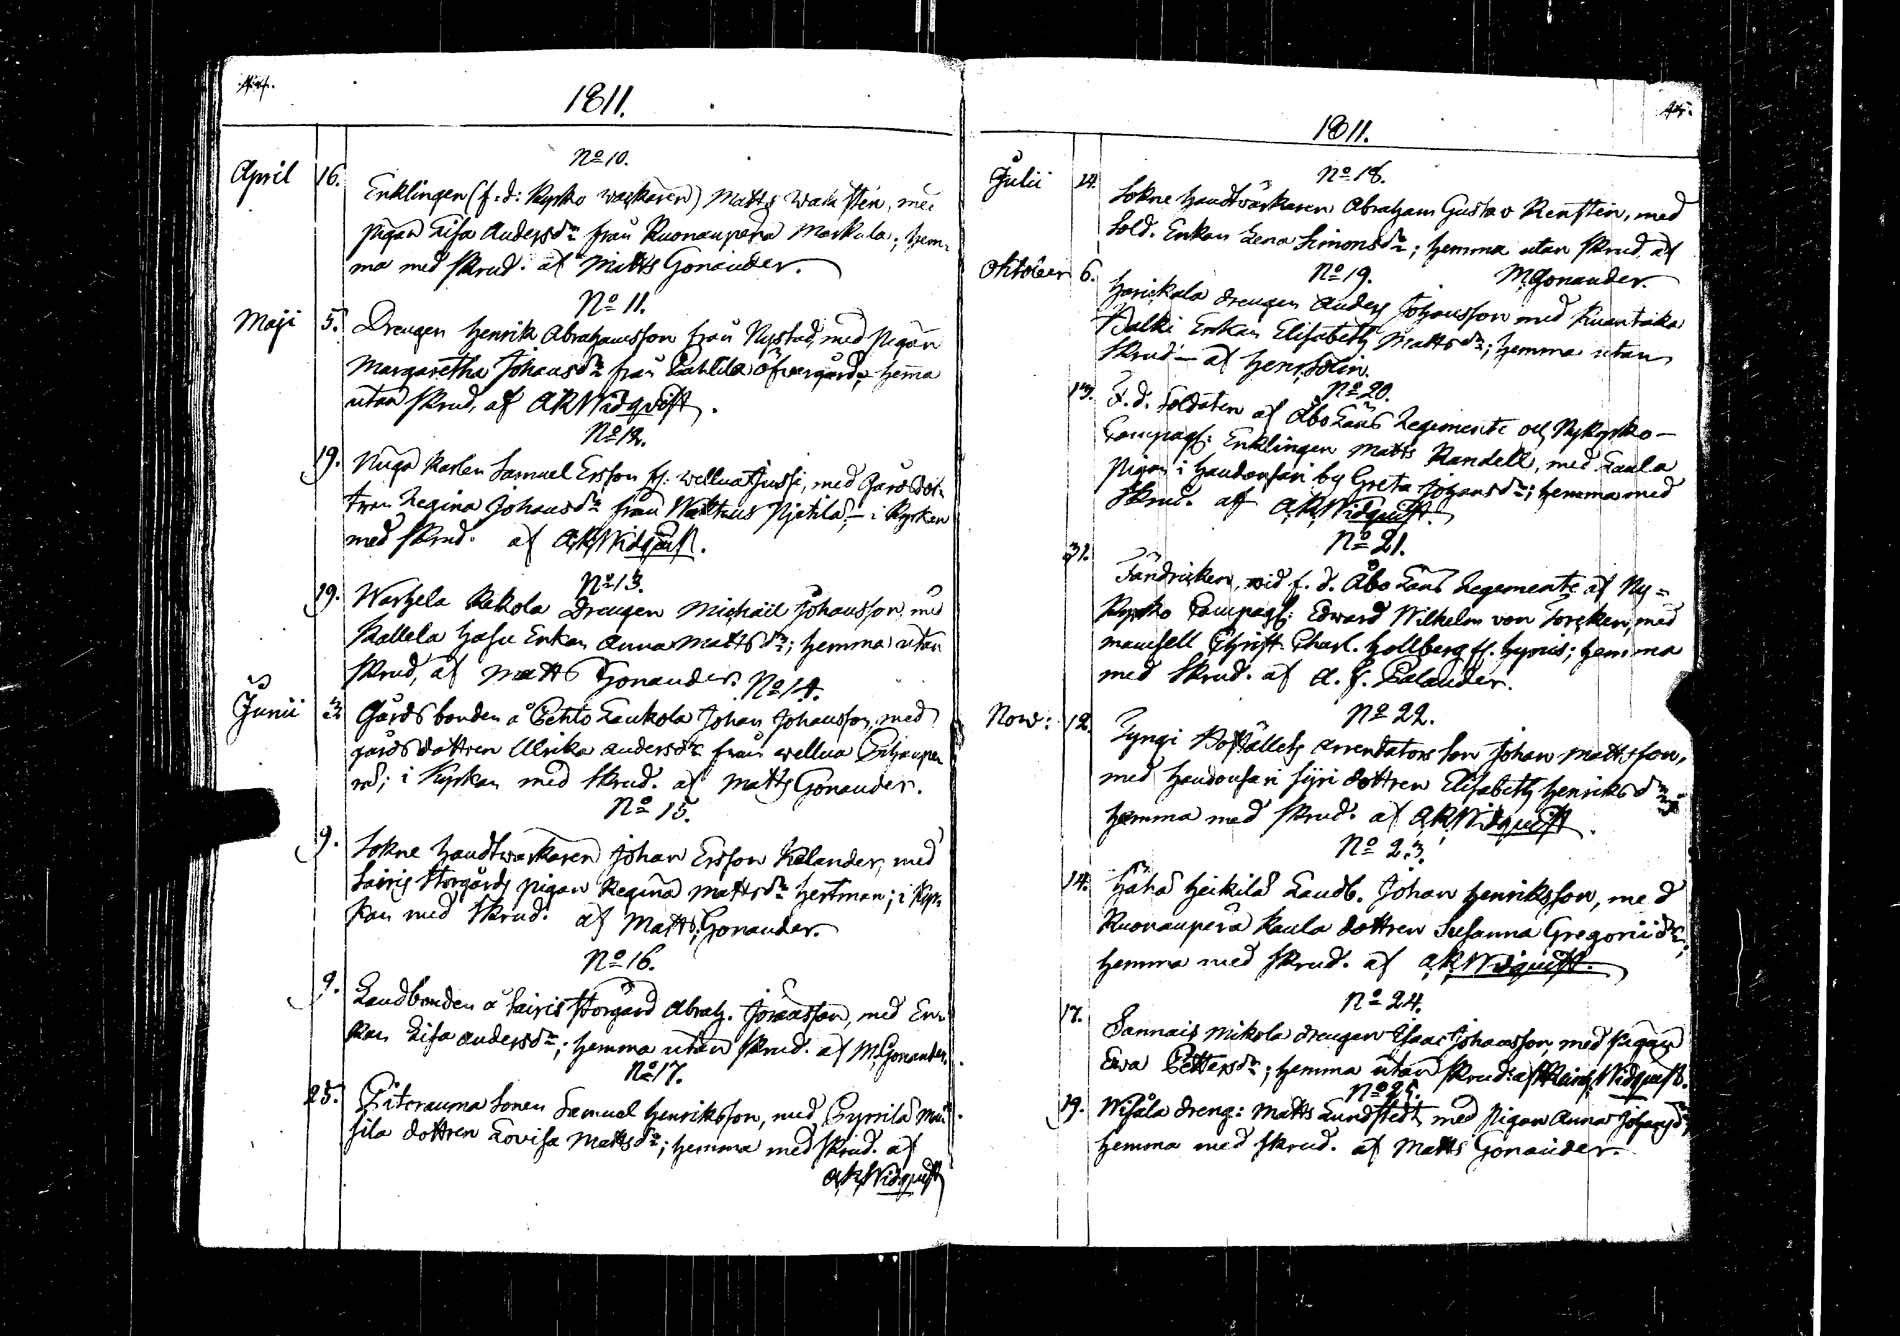 1811.
No 10.
April 16. Enklingen (f. d: Kyrko wackaren) Matts Wahlsten, med
pigan Lisa Andersdr från Kuonanperä Markula; hem-
ma med skrud. af Matts Gonander.
No 11.
Maji 5. Drengen Henrik Abrahamsson från Nystad, med pigan
Margaretha Johansdr från Öfvergårds, hemma
utan skrud, af AKWidqvist.
No 12.
19. Karlen Samuel Ersson, med Gårds dot-
tren Regina Johansdr från i Kyrkan
med skrud. af AKWidqvist.
No 13.
19. Warhela Rekola Drengen Michaël Johansson, med
Kallela Enkan Anna Mattsdr; hemma utan
skrud, af Matts Gonander.
No 14.
Junii 3 Gårdsbonden å Laukola Johan Johansson, med
gårdsdottren Ulrika Andersdr från wellua
i Kyrkan med skrud. af Matts Gonander.
No 15.
9. Sokne handtwärkaren Johan Ersson Kalander, med
Sairis Storgårds pigan Regina Mattsdr Hertman; i Kyr-
kan med skrud. af Matts Gonander.
No 16.
9. Landbonden å Sairis Storgård Abrah. med En-
kan Lisa Andersdr; hemma utan skrud. af M. Gonander.
No 17.
25. Pitkrauma sonen Samuel Henriksson, med
dottren Lovisa Mattsdr; hemma med skrud. af
AKWidqvist
45.
1811.
No 18.
Julii 14. Sokne handtwärkaren Abraham Gustav Renstein, med
Sold. Enkan Lena Simonsdr; hemma utan skrud. af
M. Gonander.
No 19.
Oktober 6. drengen Anders Johansson med
Enkan Elisabeth Mattsdr; hemma utan
skrud – af Henr. Solin.
No 20.
13. F. d. soldaten af Åbo Läns Regemente och Nykyrko –
Compag: Enklingen Matts Randell, med
pigan i Haudonsari by Greta Johansdr; hemma med
skrud. af AKWidqvist.
No 21.
31. Fändricken, wid f. d. Åbo Läns Regemente af Ny=
kyrko Compag: Edward Wilhelm von Torcken, med
mamsell Christ. Charl. Hollberg; hemma
med skrud. af
No 22.
Nov: 12. Bostället arrendators son Johan Mattsson,
med Haudonsari dottren Elisabeth Henriksdr
hemma med skrud. af AKWidqvist.
No 23.
14. Häihä Heikilä Landb. Johan Henriksson, med
Kuonanperä Kaula dottren Susanna Gregoriidr;
hemma med skrud. af AKWidqvist.
No 24.
17. Sannais Mikola drengen Isaac Johansson, med pigan
Ewa Pettersdr; hemma utan skrud: af Widqvist.
No 25.
19. dreng: Matts Lundstedt, med pigan Anna Johansdr;
hemma med skrud. af Matts Gonander.